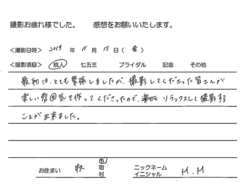 撮影お疲れ様でした。 感想をお願いいたします。
<撮影日時> 2019年 11月 15日(金)
<撮影項目> 成人 七五三 ブライダル 記念 その他
最初は、とても緊張しましたが、撮影してくださった皆さんが
楽しい雰囲気を作ってくださったので、リラックスして撮影する
ことが出来ました。
お住まい 市 町 村 ニックネーム イニシャル M.M